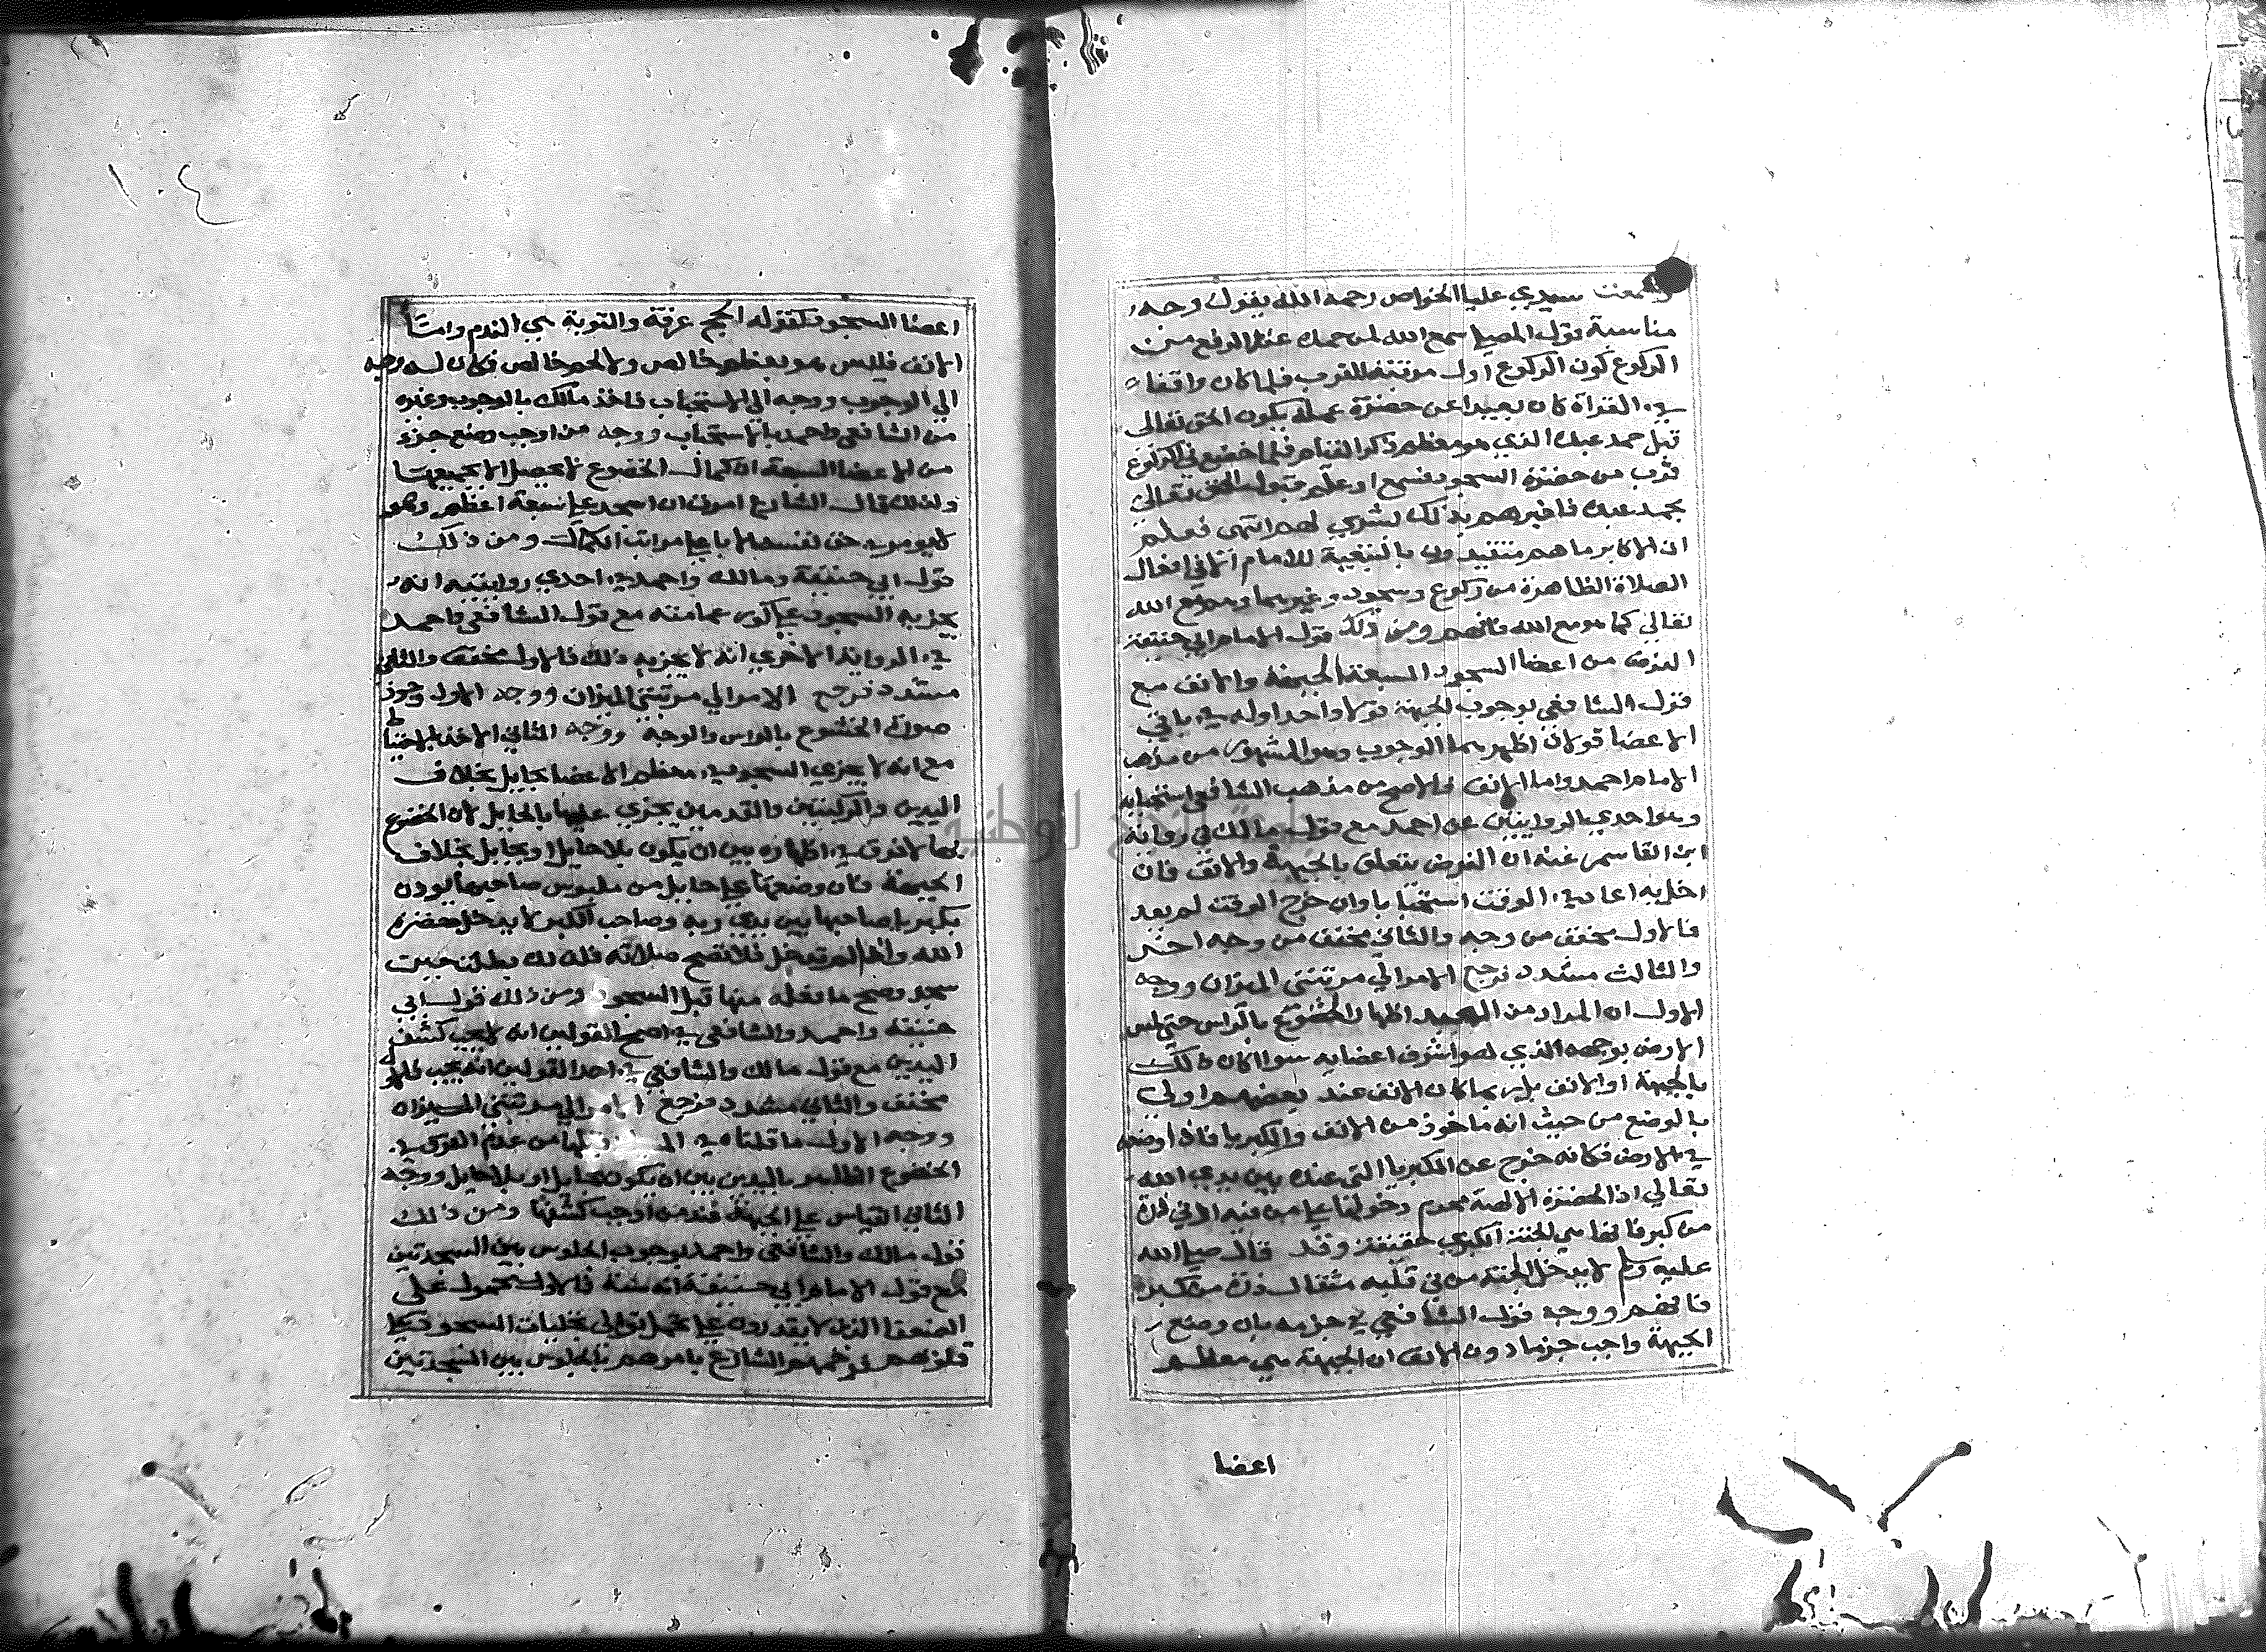 وسمعت سيدي عليا الخواص رحمه الله يقول وجه
مناسبة قول المصلي سمع الله لمن حمده عند الرفع من
الركوع كون الركوع اول مرتبة القرب فلما كان واقفا
في القراة كان بعيدا عن حضرة يكون الحق تعالى
قبل حمد عبده الذي هو معظم ذكر القيام فلما خضع في الركوع
قرب من حضرة السجود فسمع او علم قبول الحق تعالى
بحمد عبده فاخبرهم بذلك بشرى لهم انتهى فعلم
ان الاكابر ما هم متقيدون بالتبعية للامام الا في افعال
الصلاة الظاهرة من ركوع وسجود وغيرهما وهم مع الله
تعالى كما هو مع الله فافهم ومن ذلك قول الامام ابي حنيفة
الفرض من اعضا السجود السبعة الجبهة والانف مع
قول الشافعي بوجوب الجبهة قولا واحدا وله في باقي
الاعضا قولان اظهرهما الوجوب وهو المشهور من مذهب
الامام احمد واما الانف فالاصح من مذهب الشافعي استحبابه
وهو احدي الروايتين عن احمد مع قول مالك في رواية
ابن القاسم عنه ان الفرض يتعلق بالجبهة والانف فان
اخل به اعاد في الوقت استحبابا وان خرج الوقت لم يعد
فالاول مخفف من وجه والثاني مخفف من وجه اخر
والثالث مشدد فرجع الامر الي مرتبتي الميزان ووجه
الاول ان المراد من السجود اظهار الخضوع بالراس حتى يمس
الارض بوجهه الذي هو اشرف اعضايه سوا كان ذلك
بالجبهة او الانف بل ربما كان الانف عند بعضهم اولى
بالوضع من حيث انه ماخوذ من الانفة والكبريا فاذا وضعه
في الارض فكانه خرج عن الكبريا التي عنده بين يدي الله
تعالي اذ الحضرة الالهية محرم دخولها على من فيه ادني ذرة
من كبر فانها هي الجنة الكبرى حقيقة وقد قال صلى الله
عليه وسلم لا يدخل الجنة من في قلبه مثقال ذرة من كبر
فافهم ووجه قول الشافعي في جزمه بان وضع
الجبهة واجب جزما دون الانف ان الجبهة هي معظم
اعضا
اعضا السجود كقوله الحج عرفة والتوبة هي الندم واما
الانف فليس هو بعظم خالص ولا لحم خالص فكان له وجه
الي الوجوب ووجه الي الاستحباب فاخذ مالك بالوجوب وغيره
من الشافعي واحمد بالاستحباب ووجه من اوجب وضع جزء
من الاعضا السبعة ان كمال الخضوع لا يحصل الا بجميعها
ولذلك قال الشارع امرت ان اسجد على سبعة اعظم وهو
لم يومر في حق نفسه الا باعلى مراتب الكمال ومن ذلك
قول ابي حنيفة ومالك واحمد في احدي روايتيه انه
يجزيه السجود على كور عمامته مع قول الشافعي واحمد
في الرواية الاخري انه لا يجزيه ذلك فالاول مخفف والثاني
مشدد فرجع الامر الي مرتبتي الميزان ووجه الاول وجود
صورة الخشوع بالراس والوجه ووجه الثاني الاخذ بالاحتياط
مع انه لا يجزي السجود في معظم الاعضا بحايل بخلاف
اليدين والركبتين والقدمين يجزي عليها بالحايل لان الخضوع
بها لا فرق في اظهاره بين ان يكون بلا حايل او بحايل بخلاف
الجبهة فان وضعها على حايل من ملبوس صاحبها يوذن
بكبريا صاحبها بين يدي ربه وصاحب الكبر لا يدخل حضرة
الله واذا لم يدخل فلا تصح صلاته فلذلك بطلت حيث
سجد وصح ما فعله منها قبل السجود ومن ذلك قول ابي
حنيفة واحمد والشافعي في اصح القولين انه لا يجب كشف
اليدين مع قول مالك والشافعي في احد القولين انه يجب فالاول
مخفف والثاني مشدد فرجع الامر الي مرتبتي الميزان
ووجه الاول ما قلناه في قبلها من عدم الفرق في
الخضوع الظاهر باليدين بين ان يكون بحايل او بلا حايل ووجه
الثاني القياس على الجبهة عند من اوجب كشفها ومن ذلك
قول مالك والشافعي واحمد بوجوب الجلوس بين السجدتين
مع قول الامام ابي حنيفة انه سنة فالاول محمول على
الضعفا الذين لا يقدرون على تحمل توالي تجليات السجود على
قلوبهم فرحمهم الشارع بامرهم بالجلوس بين السجدتين